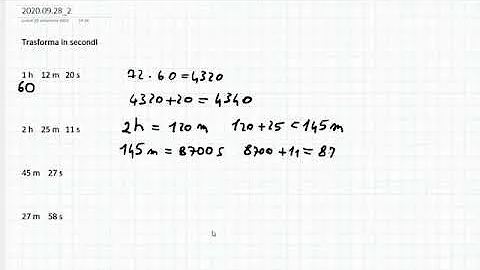 2020.09.28_2
Trasforma in secondi
1 h 12 m 20 s 72 . 60 = 4320
60
4320 + 20 = 4340
2 h 25 m 11 s 2h = 120 m 120 + 25 = 145 m
145 m = 8700 s 8700 + 11 = 87
45 m 27 s
27 m 58 s